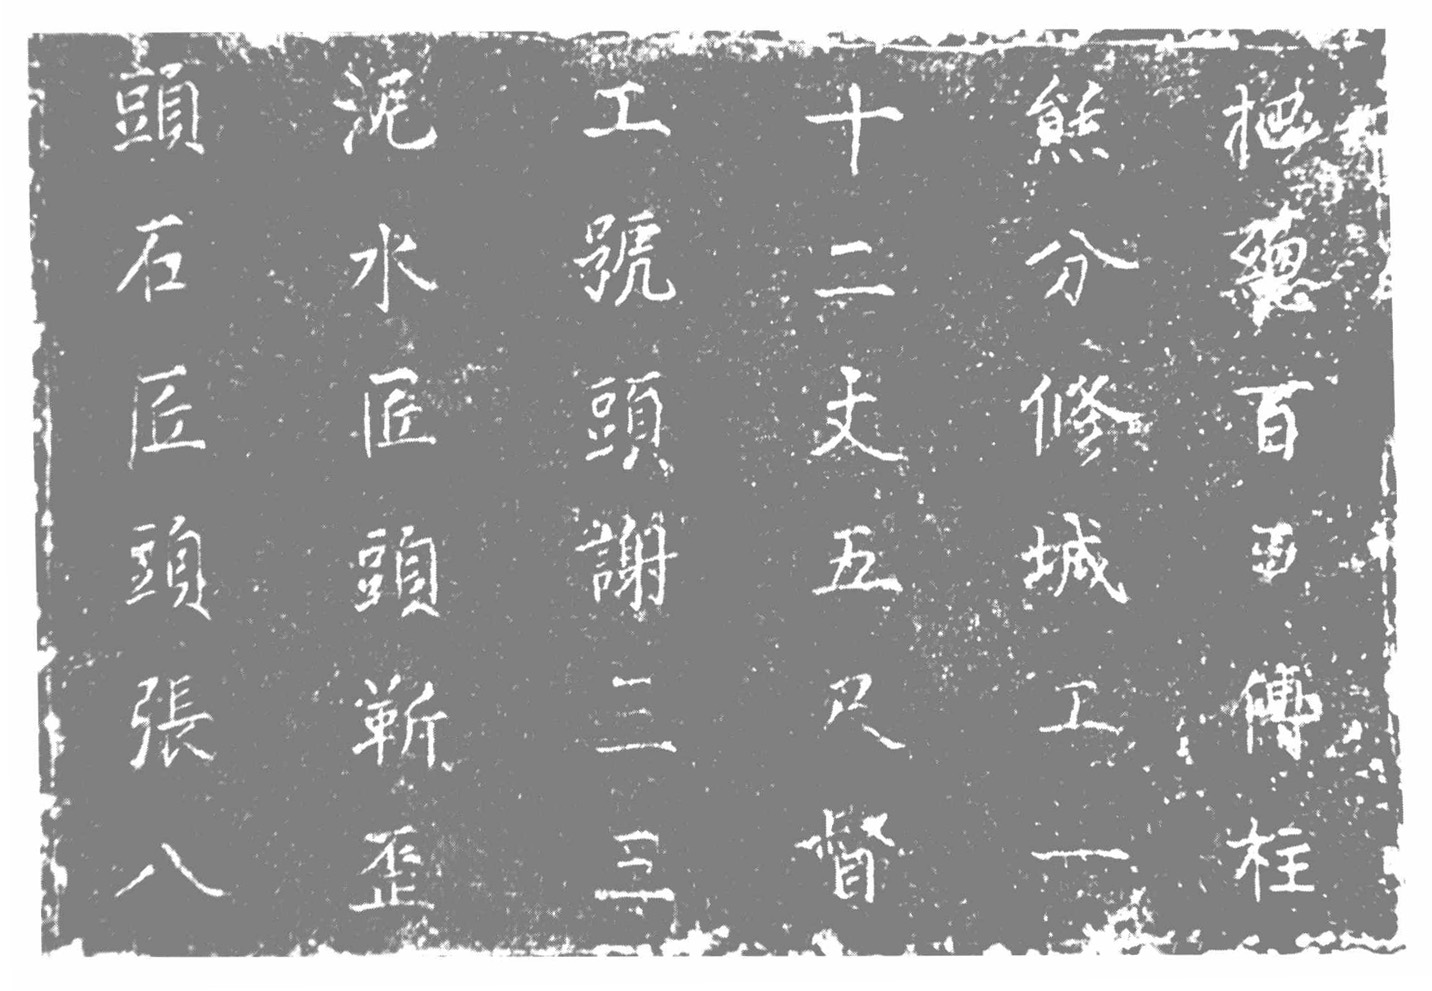 把總百户傅柱
熊分修城工一
十二丈五尺督
工號頭謝三三
泥水匠頭靳歪
頭石匠頭張八